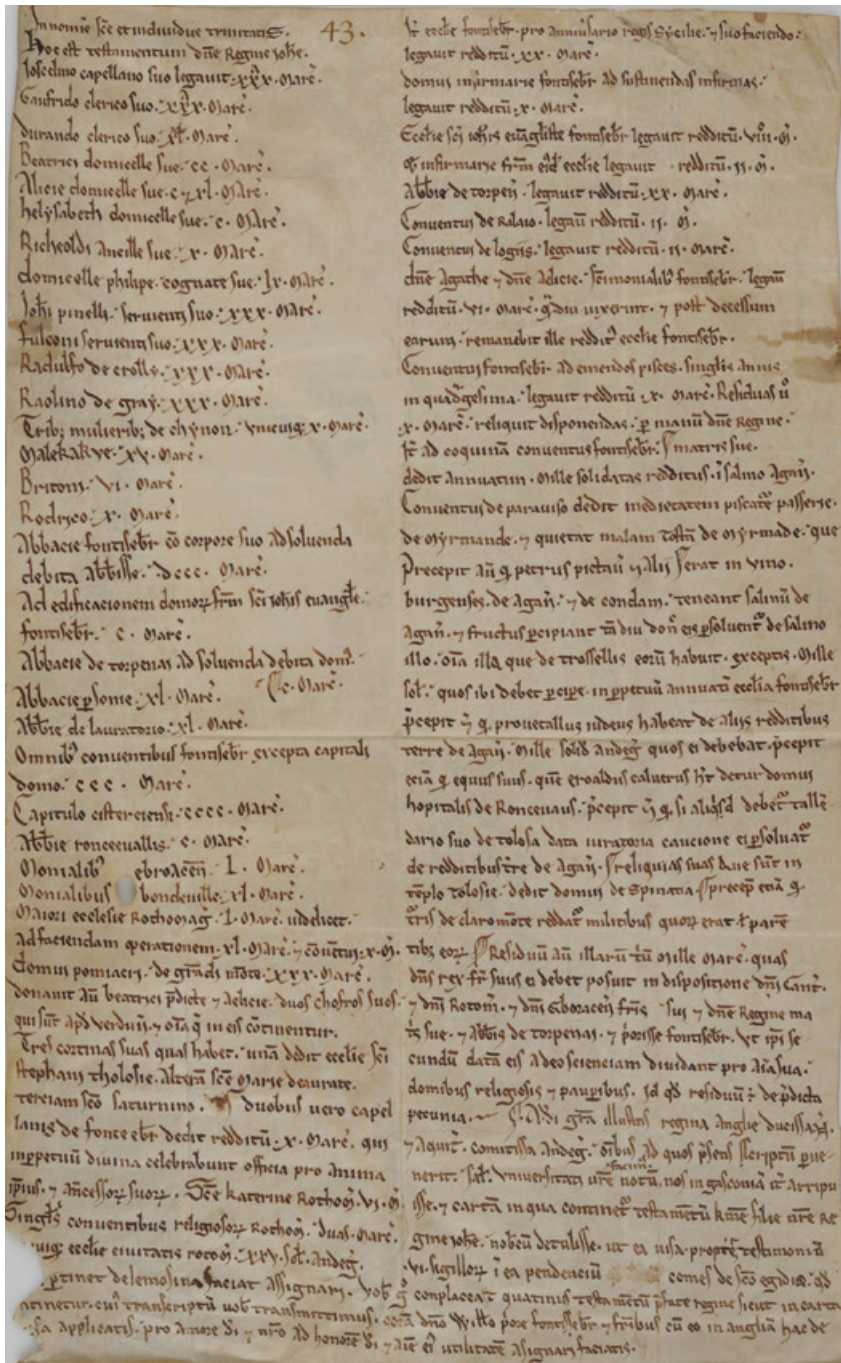 In nomine sc̄e et individue trinitatis.
43.
Hoc est testamentum dn̄e Regine Joħe.
Joscelino capellano suo legavit. xxx. Marc̄.
Gaufrido clerico suo. xxx. Marc̄.
durando clerico suo. xl. Marc̄.
Beatrici domicelle sue. cc. Marc̄.
Alicie domicelle sue. c ⁊ xl. Marc̄.
helysabeth domicelle sue. c. Marc̄.
Richeoldi Ancille sue. x. Marc̄.
domicelle philipe. cognate sue. lx. Marc̄.
Joħi pinelli. servienti suo. xxx. Marc̄.
fulconi servienti suo. xxx. Marc̄.
Radulfo de crolly. xxx. Marc̄.
Raolino de gray. xxx. Marc̄.
Tribꝫ mulieribꝫ de chynon. unicuiqꝫ x. Marc̄.
Malekakve. xv. Marc̄.
Britoni. vi. Marc̄.
Rodrico. x. Marc̄.
Abbacie fontisebr̄ cō corpore suo Ad solvenda
debita Abb̄isse. dccc. Marc̄.
Ad edificacionem domoꝝ fr̄m sc̄i ioħis euangl̄e.
fontisebr̄. c. Marc̄.
Abbacie de torpenai Ad solvenda debita dom̄.
c. Marc̄.
Abbacie ꝑsonie. xl. Marc̄.
Abb̄ie de lauratorio. xl. Marc̄.
Omnibꝰ conventibus fontisebr̄ excepta capitali
domo. ccc. Marc̄.
Capitulo cisterciensi. cccc. Marc̄.
Abb̄ie roncevallis. c. Marc̄.
Monialibꝰ ebroacen̄. l. Marc̄.
Monialibus bondeville. xl. Marc̄.
Maiori ecclesie Rothomaḡ. l. Marc̄. videlicet.
Ad faciendam operationem. xl. Marc̄. ⁊ cōventui. x. M̄.
domui pomiacri. de grādi mōte. xxx. Marc̄.
donavit Aū beatrici p̄dicte ⁊ Aelicie. duos chofros suos
qui sūt Apd̄ verdun̄. ⁊ oīa q̄ in eis cōtinentur.
Tres cortinas suas quas habet. unā dedit ecclie sc̄i
stephani tholosie. Alterā sc̄e Marie deaurate.
terciam sc̄o saturnino. Duobus vero capel
lanis de fonte ebr̄ dedit redditū. x. Marc̄. qui
inꝑpetuū divina celebrabunt officia pro Anima
ip̄ius. ⁊ Ancessoꝝ suoꝝ. Sc̄e Katerine Rothom̄. vi. M̄.
Singlis̄ conventibus religiosoꝝ Rothom̄. duas. Marc̄.
uiqꝫ ecclie civitatis rotom̄. xxv. sol. Andeḡ.
It̄ ecclie fontisebr̄. pro Anniv̄sario regis Sycilie. ⁊ suo faciendo.
legavit redditū. xx. Marc̄.
domui infirmarie fontisebr̄ Ad sustinendas infirmas.
legavit redditū. x. Marc̄.
Ecclie sc̄i ioħis euāgliste fontisebr̄ legavit redditū. viii. M̄.
⁊ infirmarie fr̄m eid̄ ecclie legavit redditū. ii. M̄.
Abb̄ie de torpen̄. legavit redditū. xx. Marc̄.
Conventui de Rilaio. legav̄ redditū. ii. M̄.
Conventui de logiis. legavit redditū. ii. Marc̄.
dn̄e Agathe ⁊ dn̄e Alicie. sc̄imonialibꝰ fontisebr̄. legav̄
redditū. vi. Marc̄. q̄diu vixerint. ⁊ post decessum
earum. remanebit ille redditꝰ ecclie fontisebr̄.
Conventui fontisebr̄ Ad emendos pisces. singlis annis
in quad̄gesima. legavit redditū. x. Marc̄. Residuas v̊
x. Marc̄. reliquit disponendas. ꝑ manū dn̄e Regine.
It̄ ad coquinā conventus fontisebr̄. matris sue.
dedit annuatim. Mille solidatas redditus. ī salino Agan̄.
Conventui de paraviso dedit medietatem piscat̄e passerie.
de Myrmande. ⁊ quietat malam tol̄tā de Myrmade. que
Precepit aū q̄ petrus pictav̄ ⁊ Alii serat in vino.
burgenses. de Agan̄. ⁊ de condam. teneant salinū de
Agan̄. ⁊ fructus ꝑcipiant tā diu don̄ eis ꝑsolvent̄ de salino
illo. oīa illa que de trossellis eorū habuit. exceptis. Mille
sol̄. quos ibi debet ꝑciꝑe. in ꝑpetuū annuatī ecclia fontisebr̄
p̄cepit ⁊ q̄. provetallus iudeus habeat de aliis redditibus
terre de Agan̄. Mille solid̄ andeḡ quos ei debebat. p̄cepit
eciā q̄ equus suus. quē eroaldus calvetus ħt detur domui
hopitalis de Roncevaus. p̄cepit ⁊ q̄. si aliq̄d debet̄ talle-
dario suo de tolosa data iuratoria caucione ei ꝑsolvat̄
de redditibus t̄re de Agan̄. reliquias suas que sūt in
tēplo tolosie. dedit domui de spinata. precep̄ eciā q̄
t̄ris de claromōte reddat̄ militibus quoꝝ erat ł parē
tibꝫ eoꝝ. Residuū Aū illarū triū Mille Marc̄. quas
dn̄s rex fr̄ suus ei debet posuit in dispositione dn̄i Cant̄.
⁊ dn̄i Rotom̄. ⁊ dn̄i Eboracen̄ fr̄is sui ⁊ dn̄e Regine ma
t̄s sue. ⁊ Abb̄is de torpenai. ⁊ p̄orisse fontisebr̄. ut ip̄i se
cundū datā eis A deo scienciam dividant pro Aīa sua.
domibus religiosis ⁊ pauꝑibus. id qd̄ residuū ē de p̄dicta
pecunia. A. di gr̄a illustris regina Anglie ducissa n̄.
⁊ Aquit̄. comitissa Andeḡ. oībus Ad quos p̄sens scriptū ꝑve-
nerit. Sal̄. Universitati vr̄e facim̄ notū, nos in gasconiā it̄ Arripu
isse. ⁊ cartā in qua continet̄ testamētū k̄me filie nr̄e Re
gine ioħe. nobcū detulisse. ut ea visa. propt̄ testimoniū
vi. sigilloꝝ ī ea pendenciū comes de sc̄o egidio. qd̄
ꝑtinet de lemosina faciat Assignari. vob̄ g̊ complaceat quatinus testamētū p̄fate regine sicut in carta
atinetur. cuiꝰ transcriptū vob̄ transmittimus. corā dn̄o Will̄o p̄ore fontisebr̄ ⁊ fr̄ibus cū eo in Angliā hac de
ca applicatis. pro Amore di ⁊ nr̄o Ad honorē di ⁊ Aīe eiꝰ utilitatē Asignari faciatis.